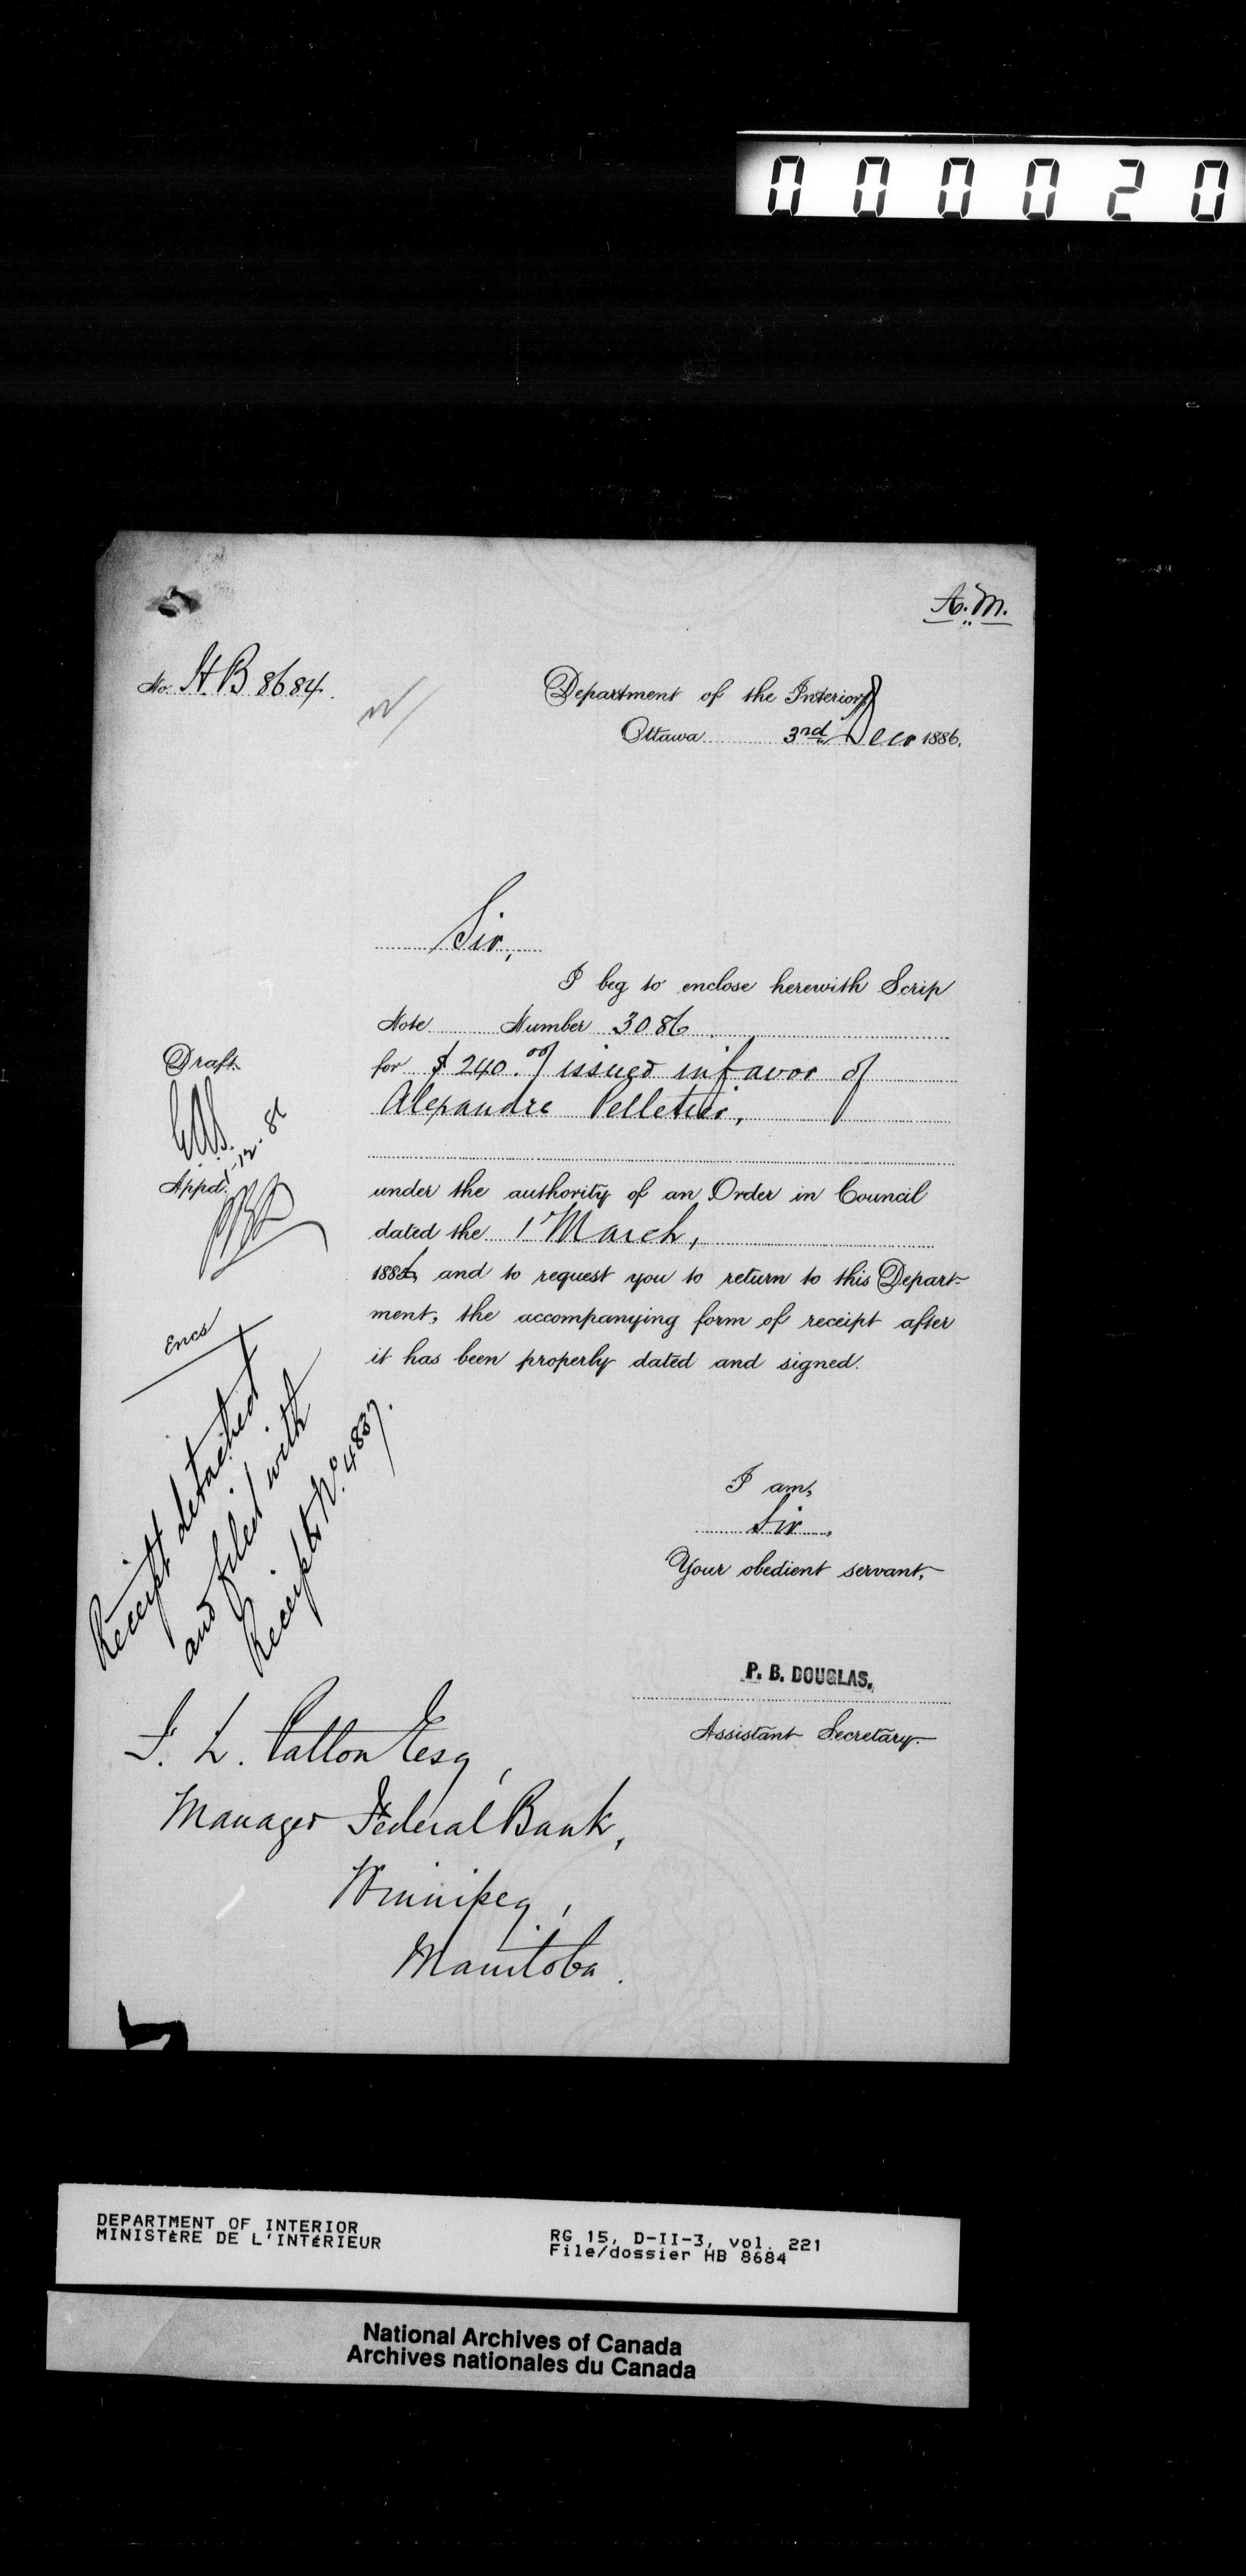 000020
A. M.
No. H B 8684.
Department of the Interior,
Ottawa 3rd Decr 1886.
Sir,
I beg to enclose herewith Scrip
Note Number 3086
for $240.00/ issued in favor of
Alexandre Pelletier,
under the authority of an Order in Council
dated the 1st March,
1886, and to request you to return to this Depart-
ment, the accompanying form of receipt after
it has been properly dated and signed.
Draft
Appd.
Encs
Receipt detached
and filed with
Receipts No. 4837.
I am,
Sir,
Your obedient servant,
P. B. DOUGLAS,
Assistant Secretary.
F. L. Patton Esq,
Manager Federal Bank,
Winnipeg,
Manitoba.
DEPARTMENT OF INTERIOR
MINISTÈRE DE L'INTÉRIEUR
RG 15, D-II-3, vol. 221
File/dossier HB 8684
National Archives of Canada
Archives nationales du Canada